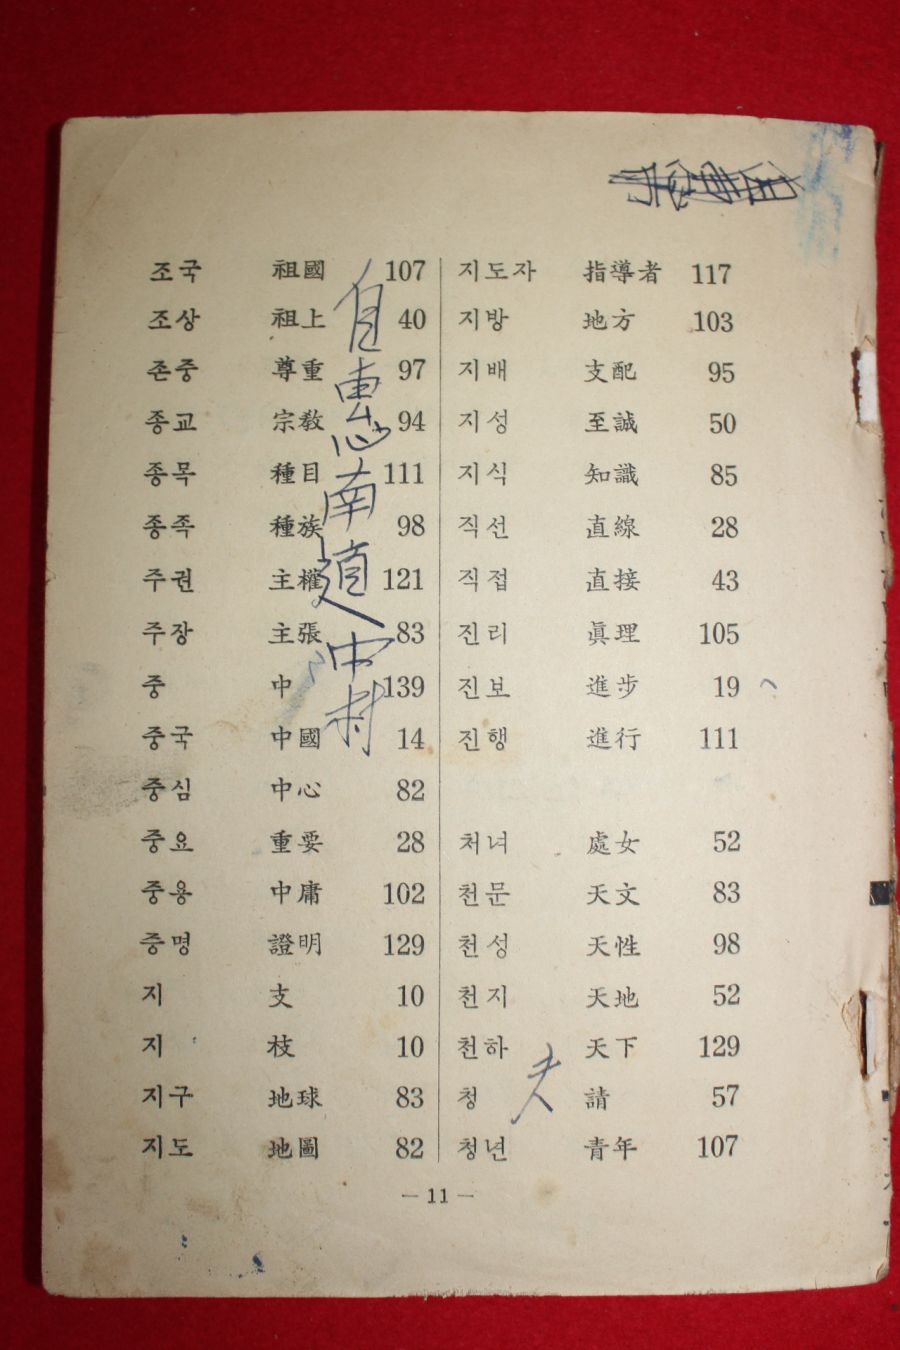 조국 祖國 107
조상 祖上 40
존중 尊重 97
종교 宗教 94
종목 種目 111
종족 種族 98
주권 主權 121
주장 主張 83
중 中 139
중국 中國 14
중심 中心 82
중요 重要 28
중용 中庸 102
증명 證明 129
지 支 10
지 枝 10
지구 地球 83
지도 地圖 82
지도자 指導者 117
지방 地方 103
지배 支配 95
지성 至誠 50
지식 知識 85
직선 直線 28
직접 直接 43
진리 眞理 105
진보 進步 19
진행 進行 111
처녀 處女 52
천문 天文 83
천성 天性 98
천지 天地 52
천하 天下 129
청 請 57
청년 青年 107
自惠南道中村
夫
— 11 —